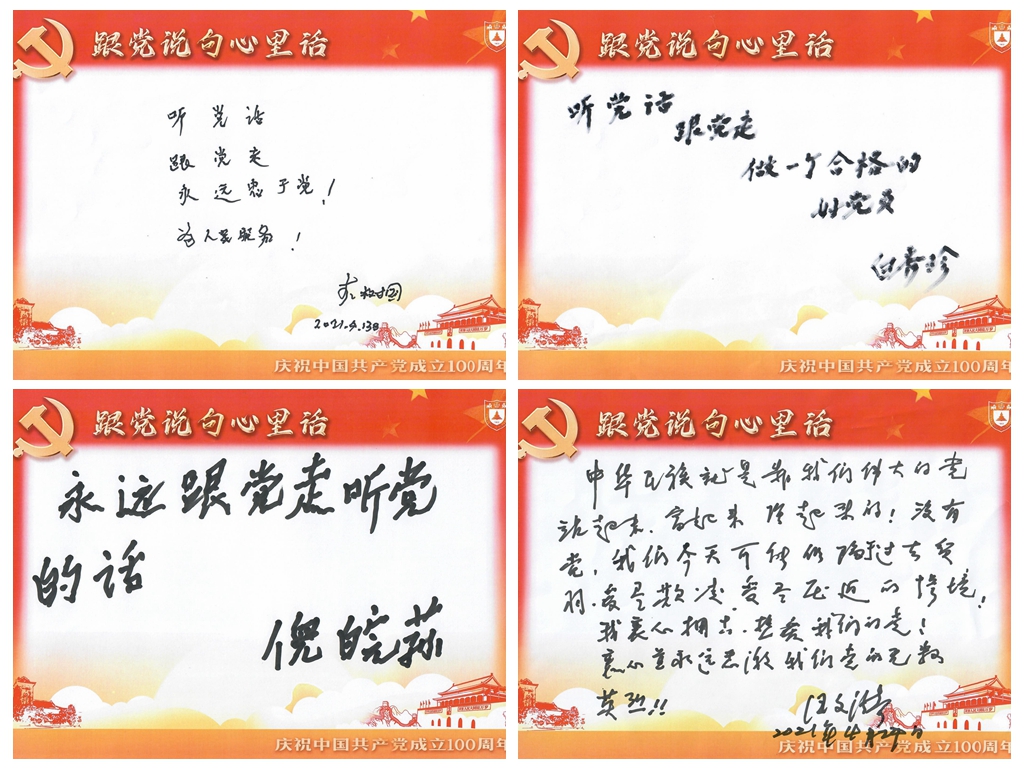 跟党说句心里话
听党话
跟党走
永远忠于党！
为人民服务！
2021.4.13日
庆祝中国共产党成立100周年
跟党说句心里话
听党话
跟党走
做一个合格的
好党员
白秀珍
庆祝中国共产党成立100周年
跟党说句心里话
永远跟党走听党
的话
倪皖荪
庆祝中国共产党成立100周年
跟党说句心里话
中华民族就是靠我们伟大的党
站起来、富起来强起来的！没有
党，我们今天可能仍陷于过去贫
弱、受尽欺凌、受尽压迫的惨境！
我衷心拥古、热爱我们的党！
衷心并永远感激我们党的无数
英烈！！
2021年4月
庆祝中国共产党成立100周年